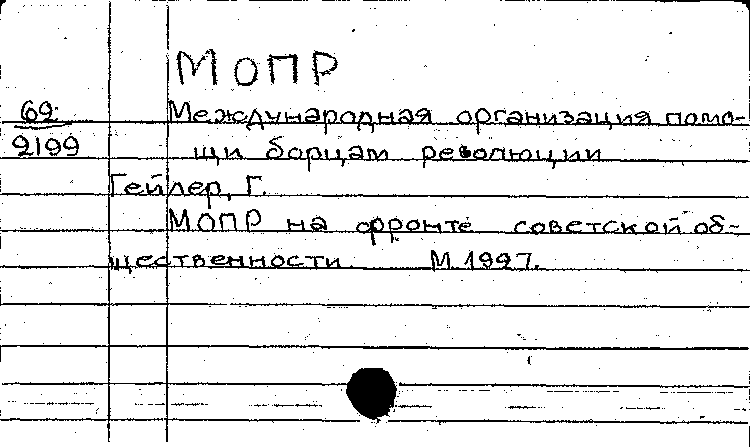 МОПР
69
2199
Международная организация помо-
щи борцам революции
Гейлер, Г.
МОПР на фронте советской об-
щественности М. 1927.